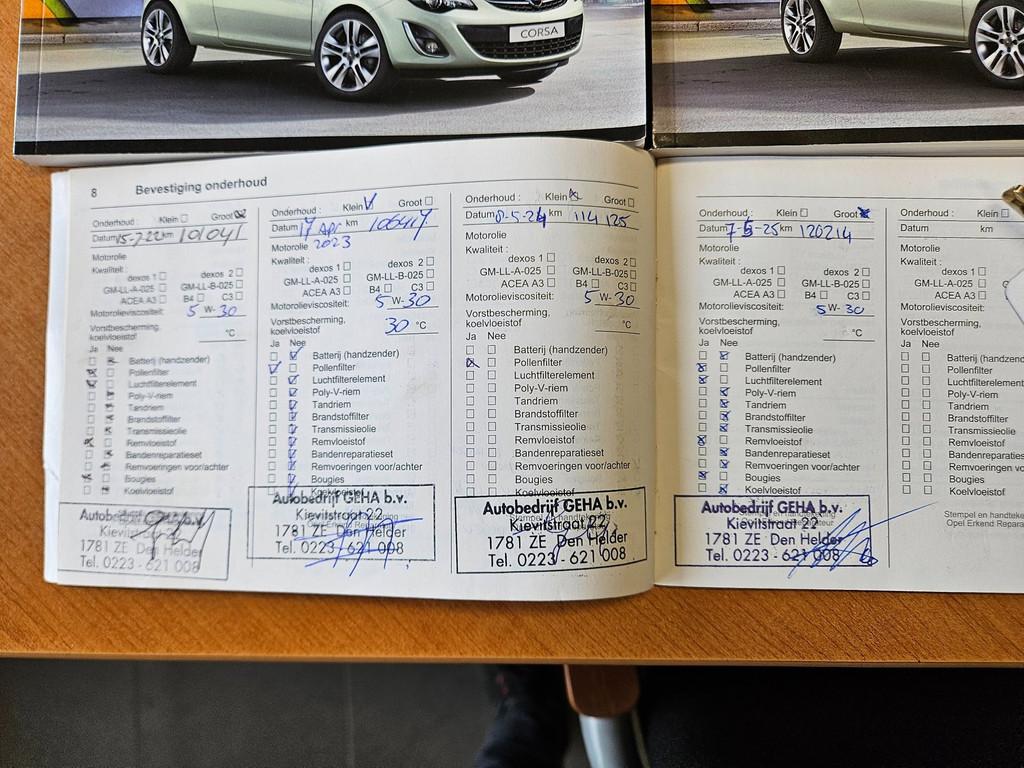 CORSA
8 Bevestiging onderhoud
Onderhoud : Klein Groot
Datum 15-7-22 km 101041
Motorolie
Kwaliteit :
dexos 1 dexos 2
GM-LL-A-025 GM-LL-B-025
ACEA A3 B4 C3
Motorolieviscositeit: 5 W-30
Vorstbescherming,
koelvloeistof °C
Ja Nee
Batterij (handzender)
Pollenfilter
Luchtfilterelement
Poly-V-riem
Tandriem
Brandstoffilter
Transmissieolie
Remvloeistof
Bandenreparatieset
Remvoeringen voor/achter
Bougies
Koelvloeistof
Autobedrijf
Kievitstraat
1781 ZE Den Helder
Tel. 0223 - 621 008
Onderhoud : Klein Groot
Datum 17 Apr km 106417
Motorolie 2023
Kwaliteit :
dexos 1 dexos 2
GM-LL-A-025 GM-LL-B-025
ACEA A3 B4 C3
Motorolieviscositeit: 5 W-30
Vorstbescherming,
koelvloeistof 30 °C
Ja Nee
Batterij (handzender)
Pollenfilter
Luchtfilterelement
Poly-V-riem
Tandriem
Brandstoffilter
Transmissieolie
Remvloeistof
Bandenreparatieset
Remvoeringen voor/achter
Bougies
Koelvloeistof
Autobedrijf GEHA b.v.
Kievitstraat 22
1781 ZE Den Helder
Tel. 0223 - 621 008
Onderhoud : Klein Groot
Datum 8-5-24 km 114 125
Motorolie
Kwaliteit :
dexos 1 dexos 2
GM-LL-A-025 GM-LL-B-025
ACEA A3 B4 C3
Motorolieviscositeit: 5 W-30
Vorstbescherming,
koelvloeistof °C
Ja Nee
Batterij (handzender)
Pollenfilter
Luchtfilterelement
Poly-V-riem
Tandriem
Brandstoffilter
Transmissieolie
Remvloeistof
Bandenreparatieset
Remvoeringen voor/achter
Bougies
Koelvloeistof
Autobedrijf GEHA b.v.
Kievitstraat 22
1781 ZE Den Helder
Tel. 0223 - 621 008
Onderhoud : Klein Groot
Datum 7-5-25 km 120214
Motorolie
Kwaliteit :
dexos 1 dexos 2
GM-LL-A-025 GM-LL-B-025
ACEA A3 B4 C3
Motorolieviscositeit: 5 W-30
Vorstbescherming,
koelvloeistof °C
Ja Nee
Batterij (handzender)
Pollenfilter
Luchtfilterelement
Poly-V-riem
Tandriem
Brandstoffilter
Transmissieolie
Remvloeistof
Bandenreparatieset
Remvoeringen voor/achter
Bougies
Koelvloeistof
Autobedrijf GEHA b.v.
Kievitstraat 22
1781 ZE Den Helder
Tel. 0223 - 621 008
Onderhoud : Klein
Datum km
Motorolie
Kwaliteit :
dexos 1
GM-LL-A-025
ACEA A3
Motorolieviscositeit:
Vorstbescherming,
koelvloeistof
Ja Nee
Batterij (handzender)
Pollenfilter
Luchtfilterelement
Poly-V-riem
Tandriem
Brandstoffilter
Transmissieolie
Remvloeistof
Bandenreparatieset
Remvoeringen vo
Bougies
Koelvloeistof
Stempel en handteke
Opel Erkend Repara